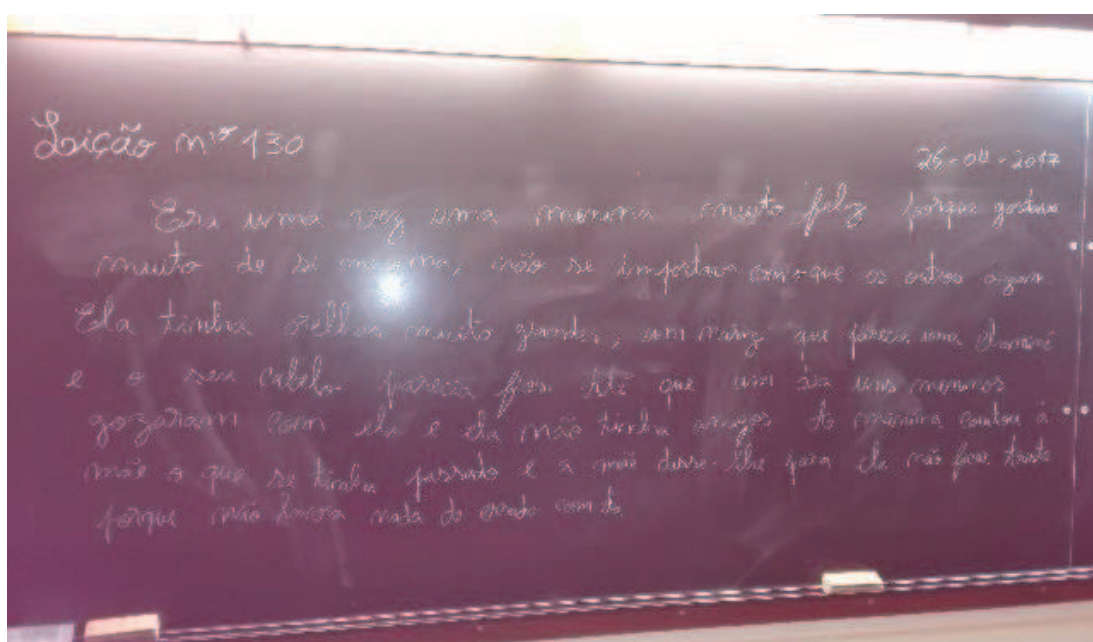 Lição nº 130
26-04-2017
Era uma vez uma menina muito feliz porque gostava
muito de si mesma, não se importava com o que os outros
Ela tinha orelhas muito grandes, um nariz que parecia uma
e o seu cabelo parecia Até que um dia uns meninos
gozaram com ela e ela não tinha amigos A menina contou à
mãe o que se tinha passado e a mãe disse-lhe para ela não ficar triste
porque não nada de errado com ela.